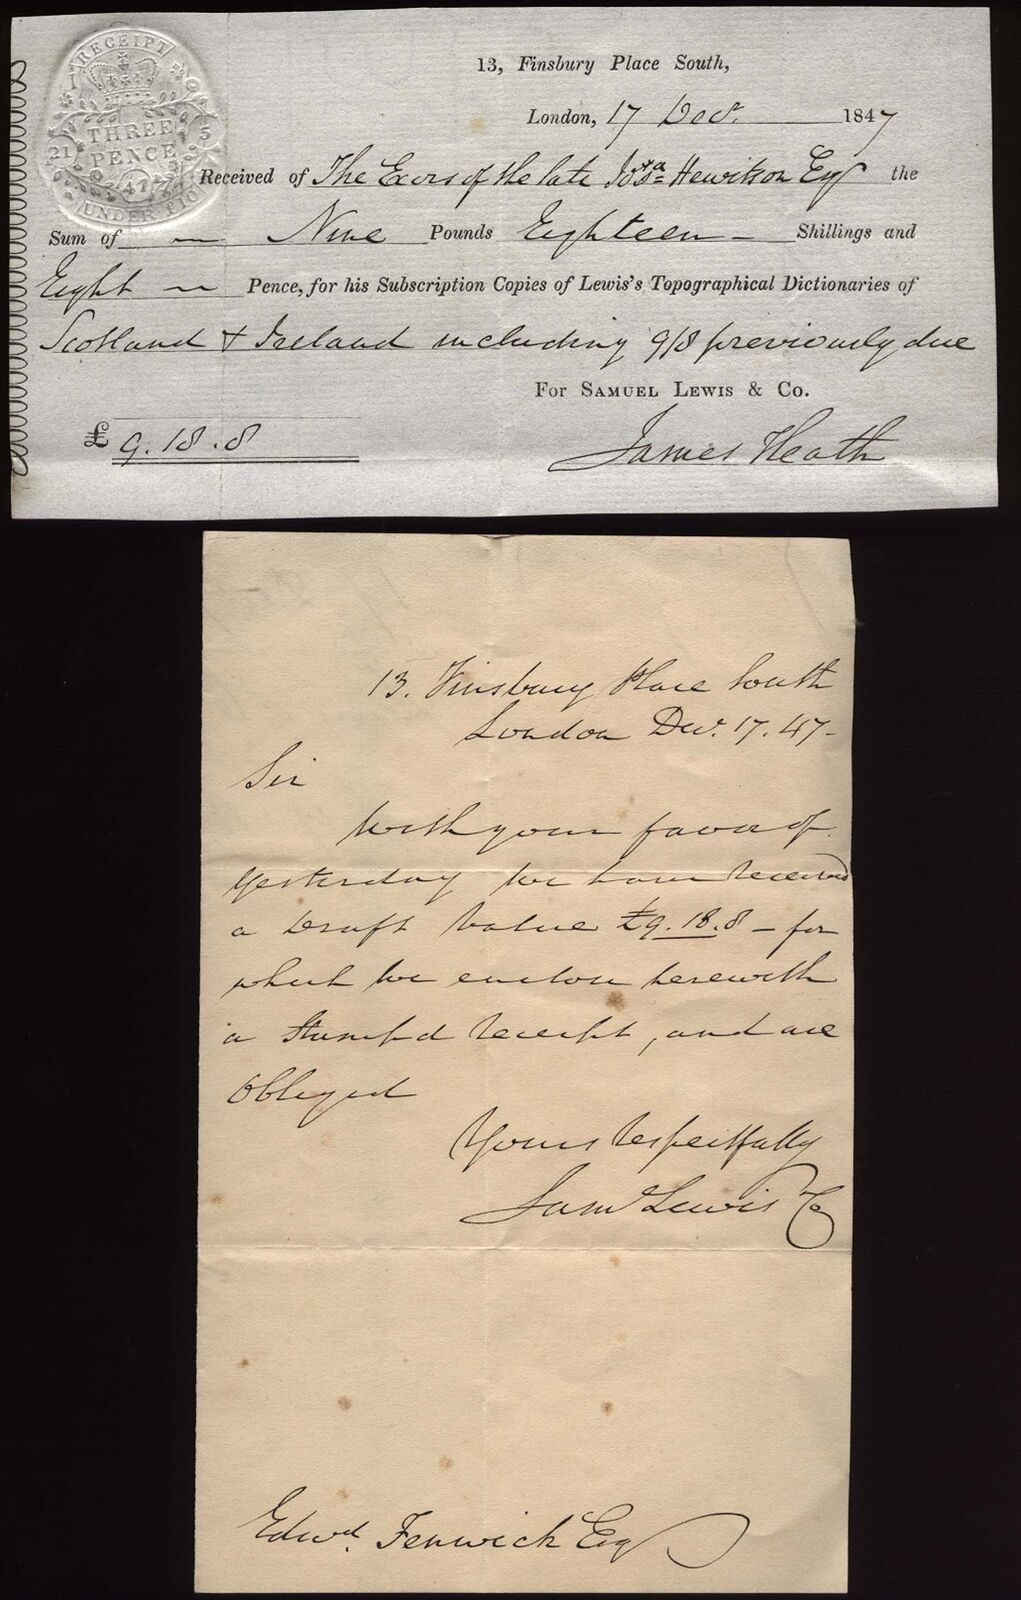 RECEIPT
THREE
PENCE
21 5
47
UNDER £10
13, Finsbury Place South,
London, 17 Decr. 1847
Received of The Exors of the late Hewitson Esqr the
Sum of Nine Pounds Eighteen — Shillings and
Eight Pence, for his Subscription Copies of Lewis's Topographical Dictionaries of
Scotland & Ireland including 9/8 previously due
For SAMUEL LEWIS & Co.
£ 9.18.8
James Heath
13. Finsbury Place South
London Decr. 17. 47-
Sir
With your favor of
yesterday we have received
a Draft value £9.18.8 – for
which we enclose herewith
a Stamp'd receipt, and are
Obliged
Yours respectfully
Saml Lewis & Co
Edwd. Fenwick Esqr